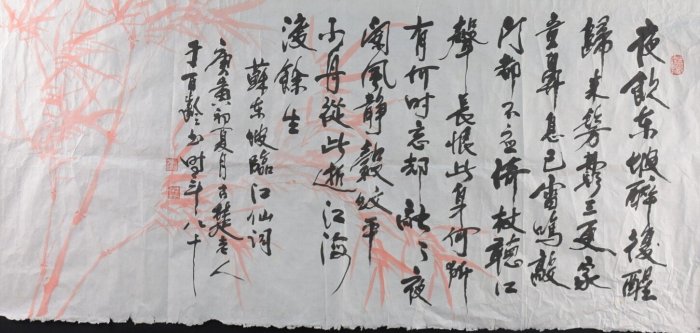 夜飲东坡醉復醒
歸来髣髴三更家
童鼻息已雷鳴敲
门都不应倚杖聽江
聲長恨此身何所
有何时忘却营々夜
闌風静縠紋平
小舟從此逝江海
寄餘生
蘇东坡臨江仙詞
庚寅初夏月古楚老人
于百齡书时年八十